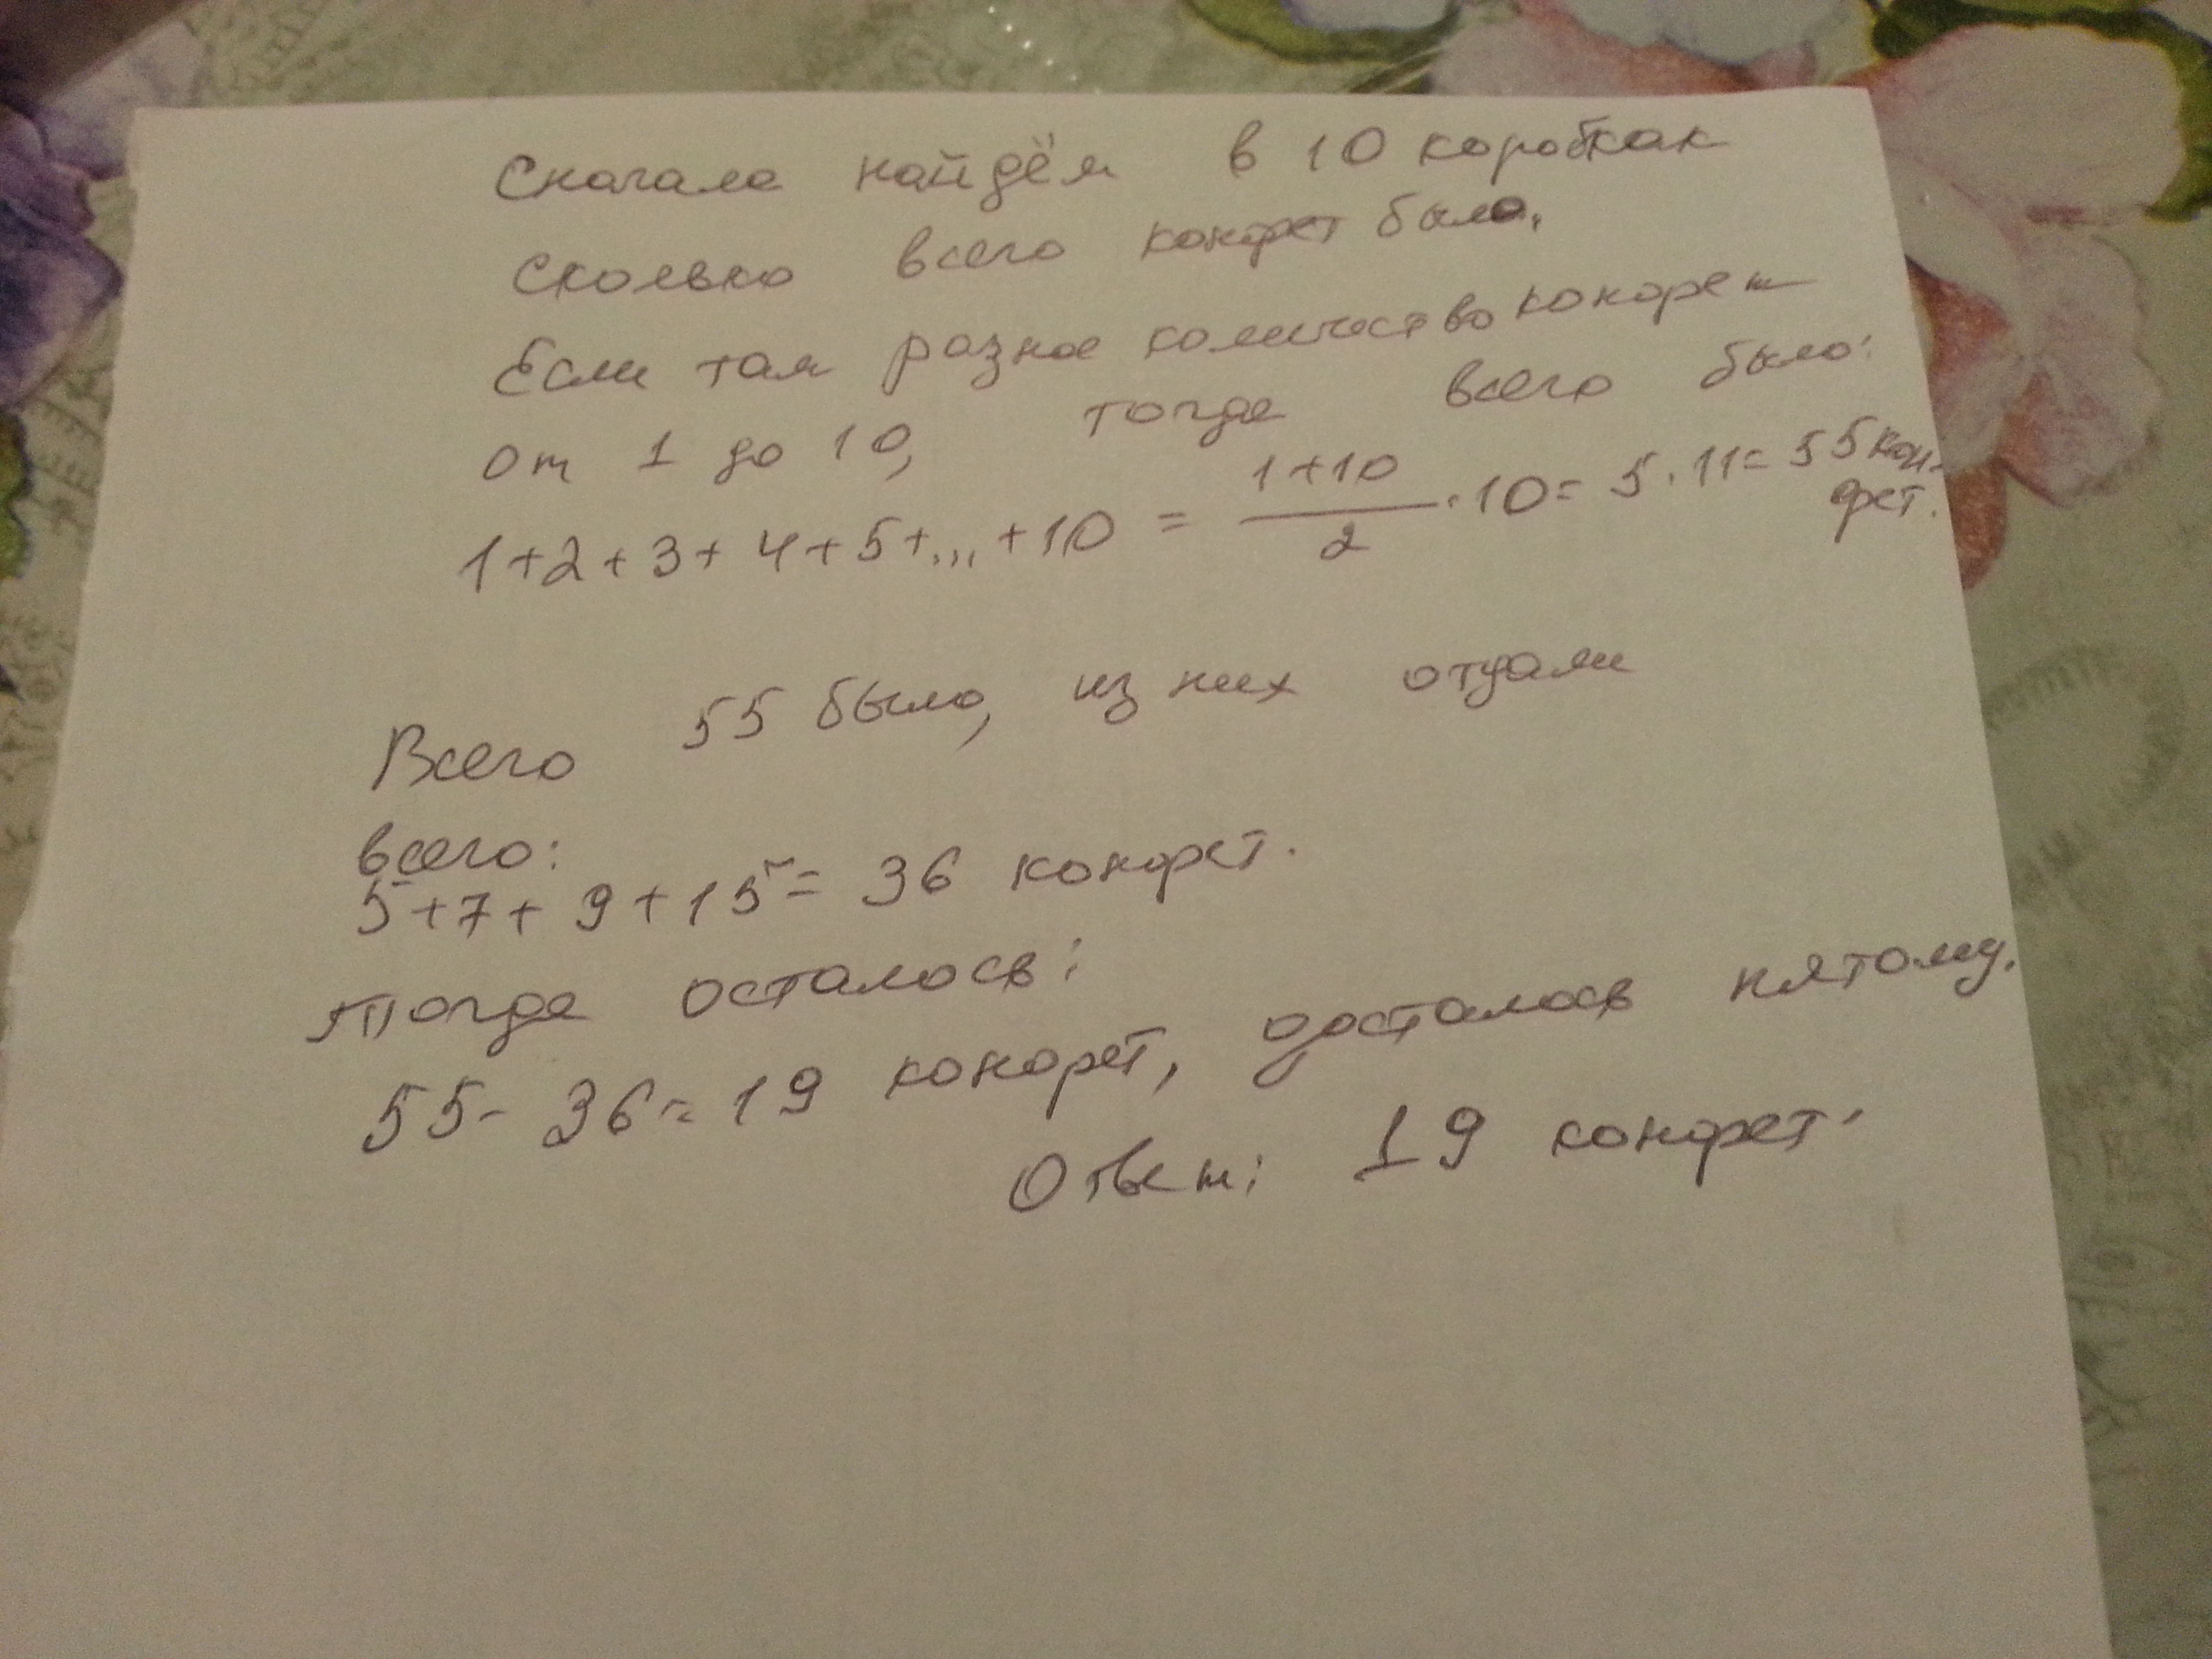 Сначала найдём в 10 коробках
сколько всего конфет было.
Если там разное количество конфет
от 1 до 10, тогда всего было:
1+2+3+4+5+...+10 = \frac{1+10}{2} \cdot 10 = 5 \cdot 11 = 55 кон-
фет.
Всего 55 было, из них отдали
всего:
5+7+9+15= 36 конфет.
Тогда осталось:
55-36=19 конфет, досталось пятому.
Ответ: 19 конфет.